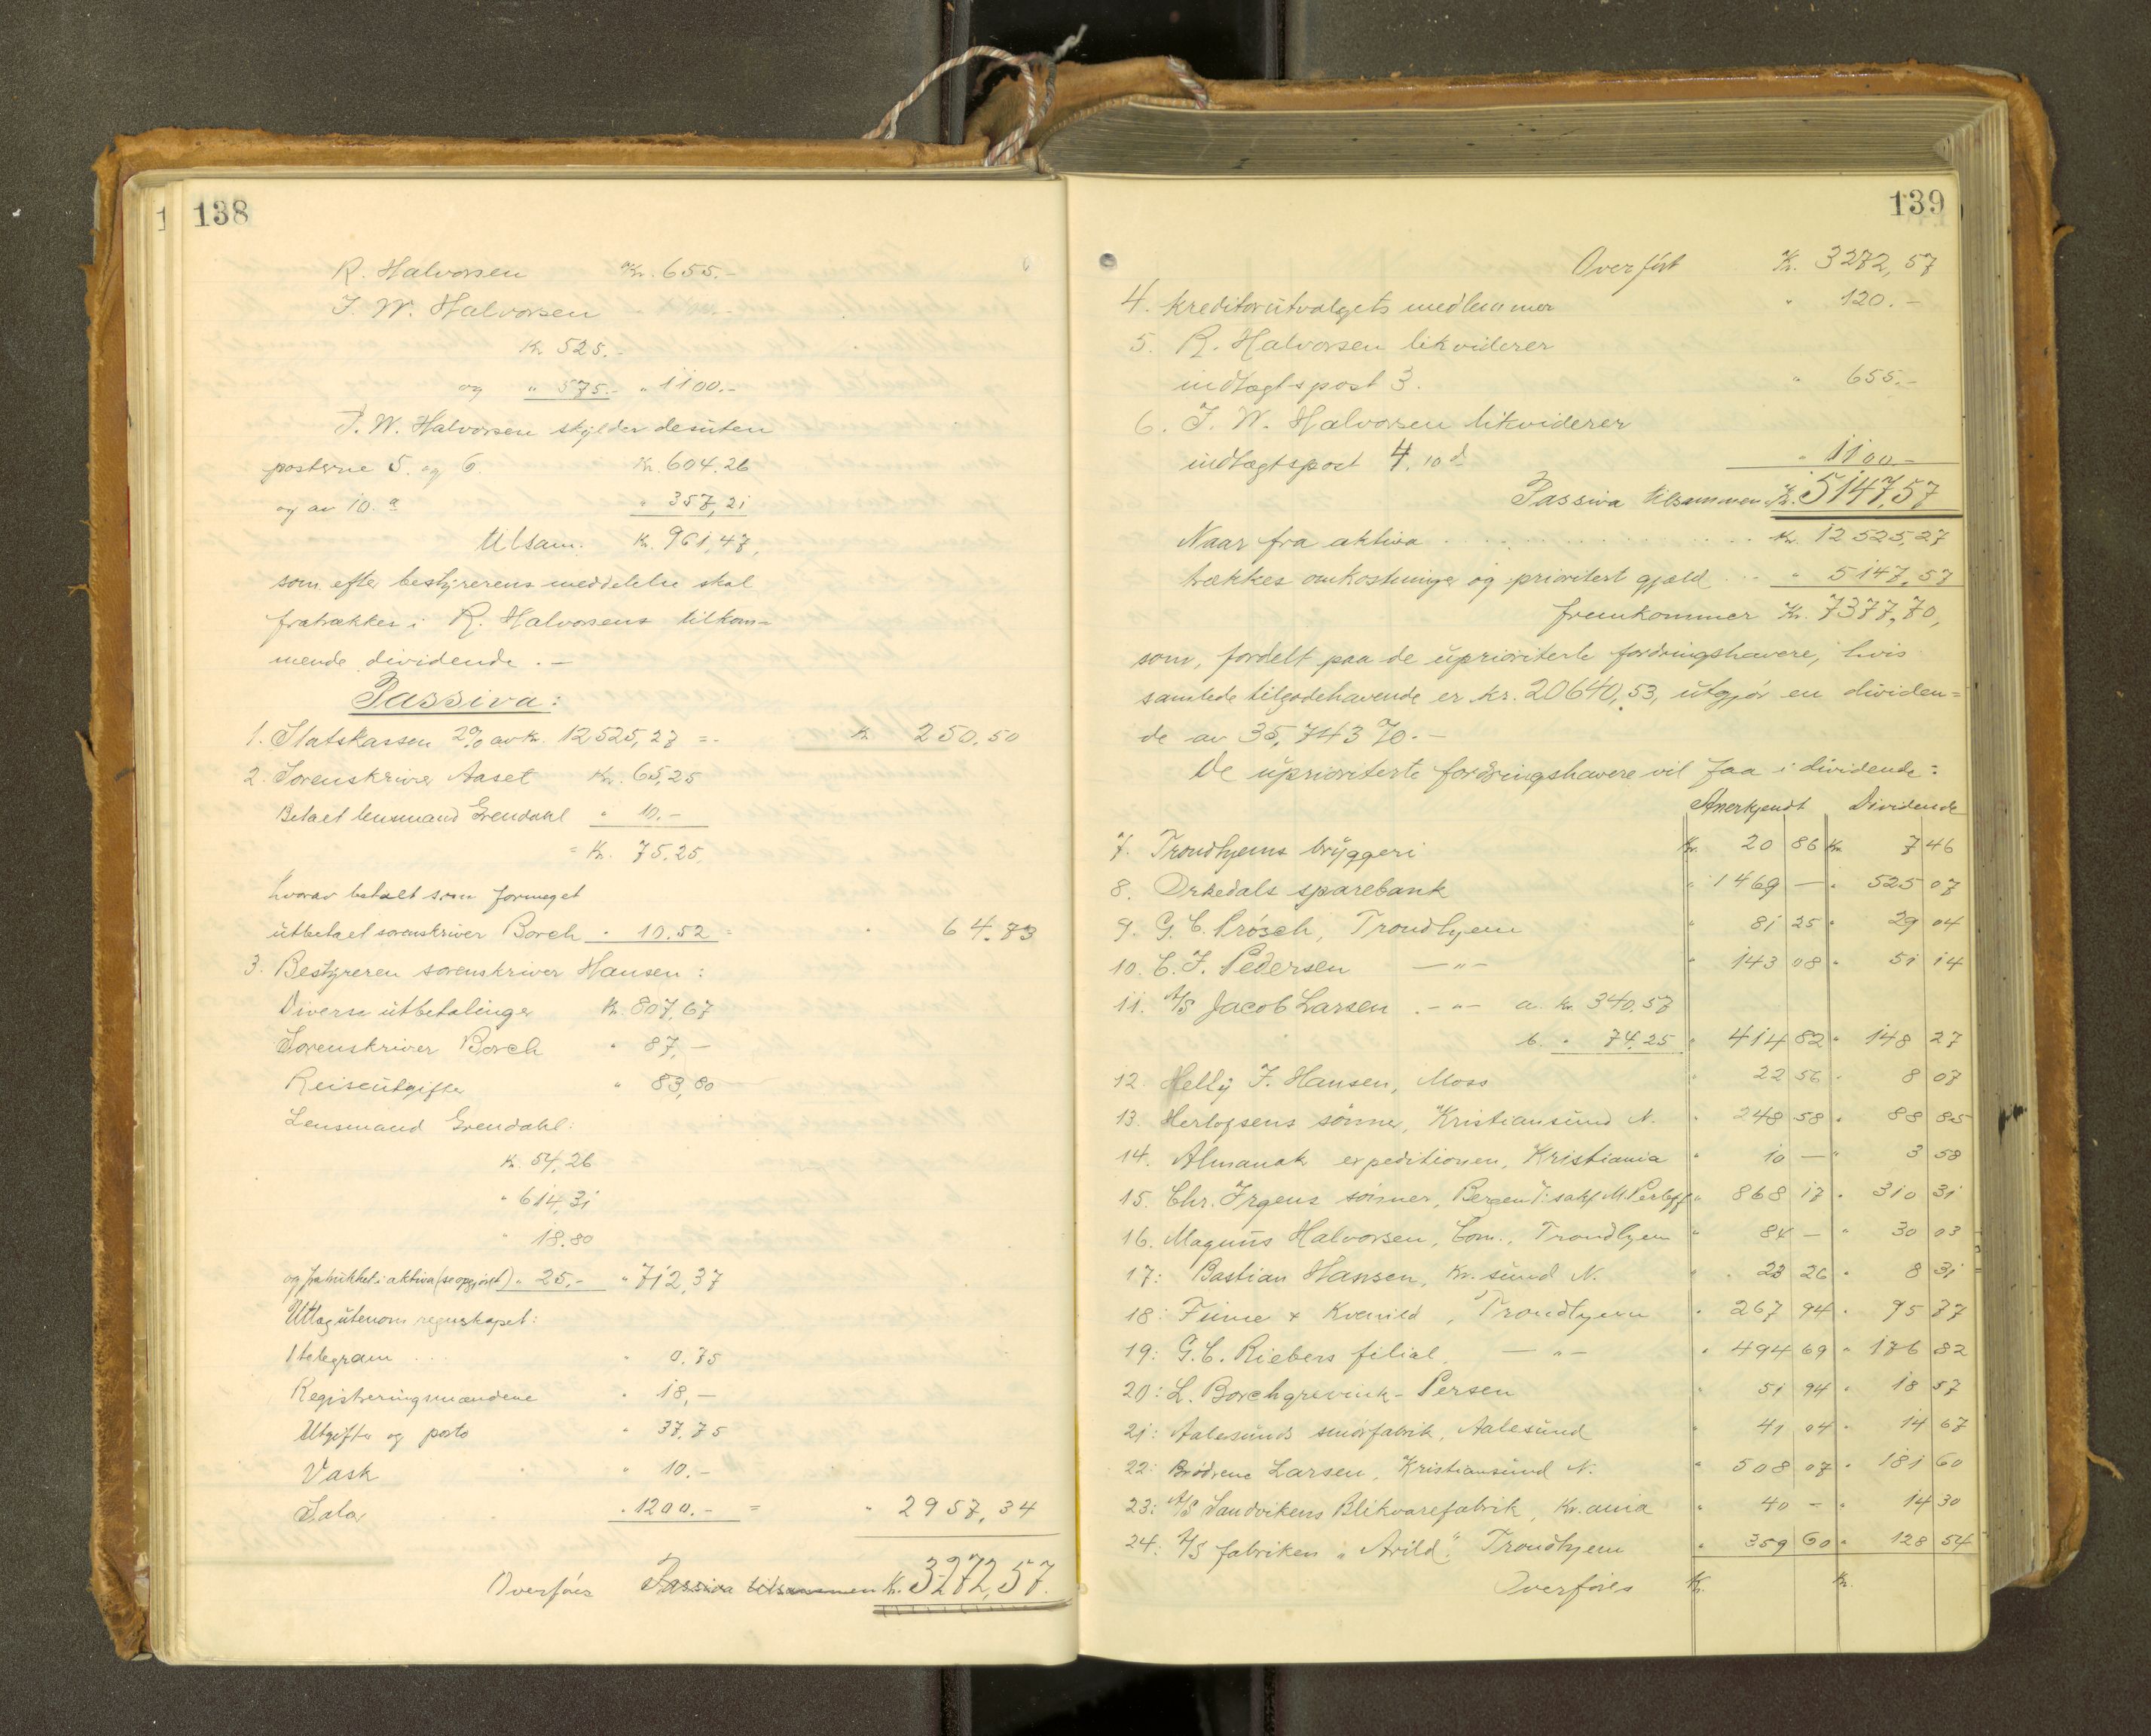 138
R. Halvorsen Kr. 655.-
J. W. Halvorsen
Kr. 525.-
og " 575.- " 1100.-
J. W. Halvorsen skylder desuten
posterne 5. og 6. Kr. 604.26
og av 10.a " 357,21
tilsam. Kr. 961,47,
som efter bestyrerens meddelelse skal
fratrækkes i R. Halvorsens tilkom-
mende dividende. -
Passiva:
1. Statskassen 2% av kr. 12525,27 = - Kr. 250.50
2. Sorenskriver Aaset Kr. 65,25
Betalt lensmand Grendahl " 10.-
= Kr. 75.25.
hvorav betalt som formeget
utbetalt sorenskriver Borch " 10.52 = " 64.73
3. Bestyreren sorenskriver Hansen:
Diverse utbetalinger Kr. 807,67
Sorenskriver Borch " 87,-
Reiseutgifter " 83,80
Lensmand Grendahl:
Kr. 54,26
" 614,31
" 18.80
og fratrukket i aktiva (se opgjöret) " 25,- " 712,37
Utlæg utenom regnskapet:
1 telegram " 0.75
Registreringsmændene " 18,-
Utgifter og porto " 37.75
Vask " 10.-
Salær " 1200.- = " 2957,34
Overföres Passiva tilsammen Kr. 3272,57.
139
Overfört Kr. 3272,57
4. Kreditorutvalgets medlemmer " 120.-
5. R. Halvorsen likviderer
indtægtspost 3. " 655.-
6. J. W. Halvorsen likviderer
indtægtspost 4. 10 d " 1100.-
Passiva tilsammen Kr. 5147,57
Naar fra aktiva Kr. 12525,27
trækkes omkostninger og prioritert gjæld " 5147,57
fremkommer Kr. 7377,70,
som, fordelt paa de uprioriterte fordringshavere, hvis
samlede tilgodehavende er kr. 20640,53, utgjör en dividen=
de av 35,743 %.-
De uprioriterte fordringshavere vil faa i dividende:
Anerkjendt Dividende
7. Trondhjems bryggeri Kr. 20 86 Kr. 7 46
8. Orkedals sparebank " 1469 - " 525 07
9. G. C. Prösch, Trondhjem " 81 25 " 29 04
10. C. J. Pedersen -"- " 143 08 " 51 14
11. A/S Jacob Larsen -"- a. kr. 340.57
b. " 74,25 " 414 82 " 148 27
12. Helly J. Hansen, Moss " 22 56 " 8 07
13. Herlofsens sönner, Kristiansund N. " 248 58 " 88 85
14. Almanak expeditionen, Kristiania " 10 - " 3 58
15. Chr. Irgens sönner, Bergen v: sakf. M. " 868 17 " 310 31
16. Magnus Halvorsen, Com., Trondhjem " 84 - " 30 03
17: Bastian Hansen, Kr.sund N. " 23 26 " 8 31
18: Finne & Kvenild, Trondhjem " 267 94 " 95 77
19: G. C. Riebers filial, -"- " 494 69 " 176 82
20: L. Borchgrevink-Persen " 51 94 " 18 57
21: Aalesunds smörfabrik, Aalesund " 41 04 " 14 67
22: Brödrene Larsen, Kristiansund N. " 508 07 " 181 60
23: A/S Sandvikens Blikvarefabrik, Kr.ania " 40 - " 14 30
24: A/S fabriken "Arild" Trondhjem " 359 60 " 128 54
Overföres Kr. Kr.